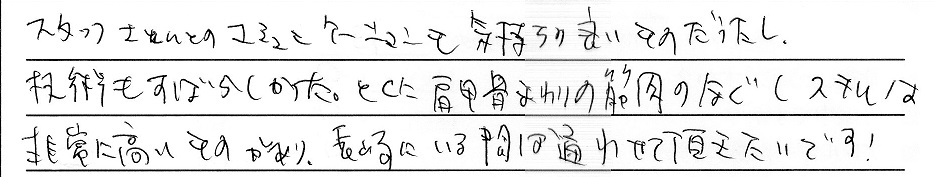 スタッフさんとのコミュニケーションも気持ちの良いものだったし、
技術もすばらしかった。とくに肩甲骨まわりの筋肉のほぐしスキルは
非常に高いものがあり、長崎にいる間は通わせて頂きたいです!